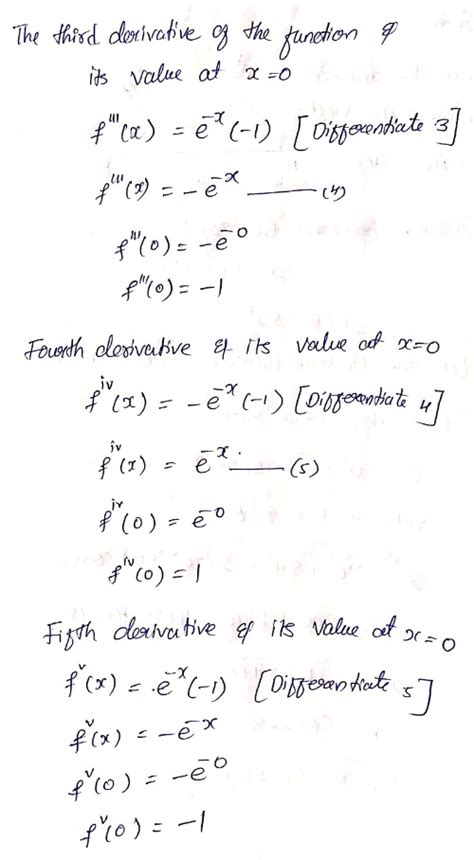 The third derivative of the function &
its value at x=0
f'''(x) = e⁻ˣ(-1) [Differentiate 3]
f'''(x) = -e⁻ˣ ——— (4)
f'''(0) = -e⁻⁰
f'''(0) = -1
Fourth derivative & its value at x=0
fⁱᵛ(x) = -e⁻ˣ(-1) [Differentiate 4]
fⁱᵛ(x) = e⁻ˣ ——— (5)
fⁱᵛ(0) = e⁻⁰
fⁱᵛ(0) = 1
Fifth derivative & its value at x=0
fᵛ(x) = e⁻ˣ(-1) [Differentiate 5]
fᵛ(x) = -e⁻ˣ
fᵛ(0) = -e⁻⁰
fᵛ(0) = -1